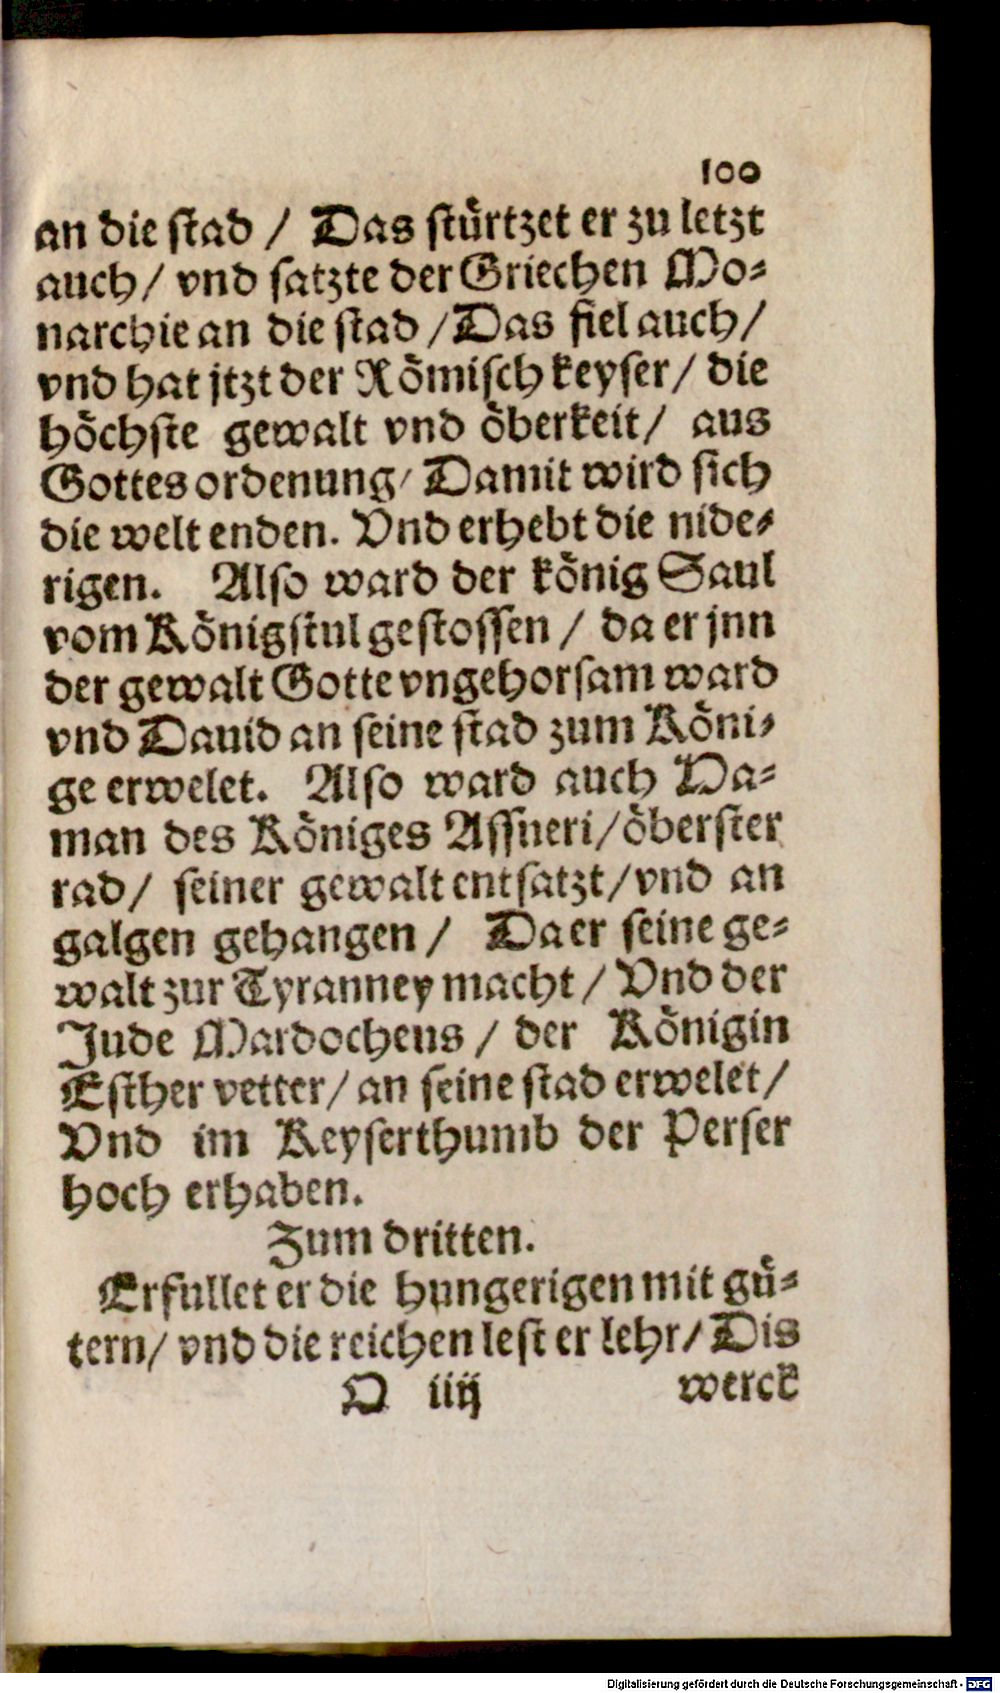 100
an die stad / Das stürtzet er zu letzt
auch / vnd satzte der Griechen Mo-
narchie an die stad / Das fiel auch /
vnd hat jtzt der Römisch keyser / die
höchste gewalt vnd öberkeit / aus
Gottes ordenung / Damit wird sich
die welt enden. Vnd erhebt die nide-
rigen. Also ward der könig Saul
vom Königstul gestossen / da er jnn
der gewalt Gotte vngehorsam ward
vnd Dauid an seine stad zum Köni-
ge erwelet. Also ward auch Ha-
man des Königes Assueri / öberster
rad / seiner gewalt entsatzt / vnd an
galgen gehangen / Da er seine ge-
walt zur Tyranney macht / Vnd der
Jude Mardocheus / der Königin
Esther vetter / an seine stad erwelet /
Vnd im Keyserthumb der Perser
hoch erhaben.
Zum dritten.
Erfullet er die hungerigen mit gü-
tern / vnd die reichen lest er lehr / Dis
O iiij werck
Digitalisierung gefördert durch die Deutsche Forschungsgemeinschaft - DFG